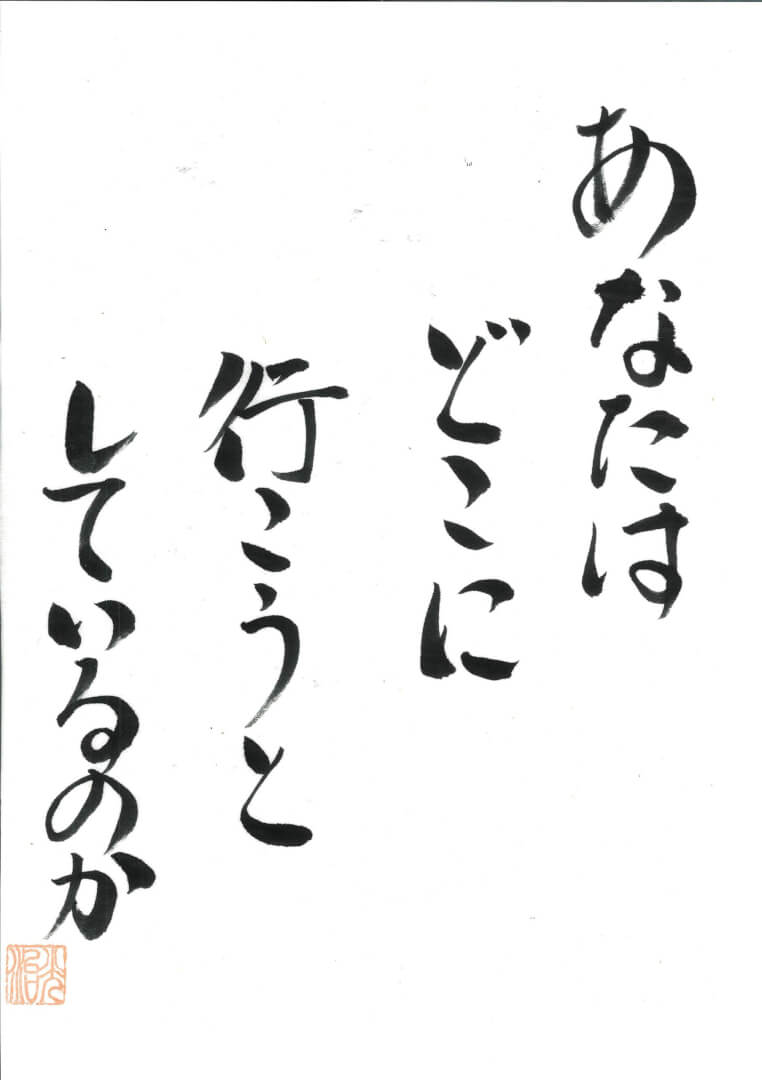 あなたは
どこに
行こうと
しているのか